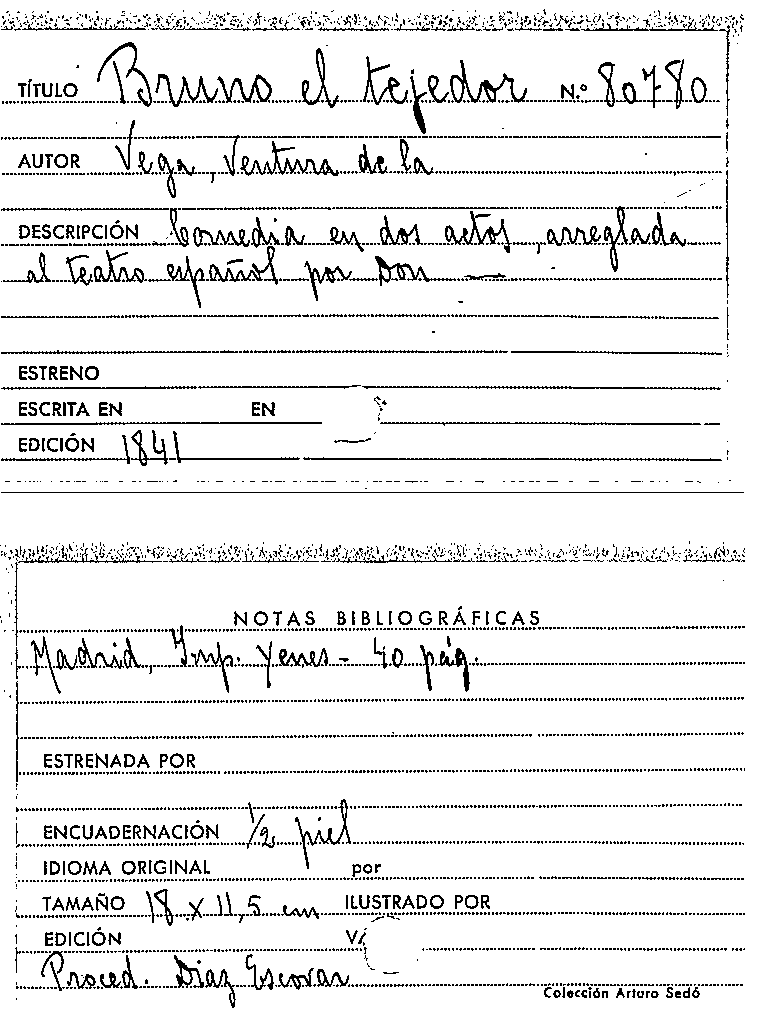 TÍTULO Bruno el tejedor N.º 80780
AUTOR Vega, Ventura de la
DESCRIPCIÓN Comedia en dos actos, arreglada
al teatro español por Don —
ESTRENO
ESCRITA EN EN
EDICIÓN 1841
NOTAS BIBLIOGRÁFICAS
Madrid, Imp. Yenes - 40 pág.
ESTRENADA POR
ENCUADERNACIÓN 1/2 piel
IDIOMA ORIGINAL por
TAMAÑO 18 x 11,5 cm ILUSTRADO POR
EDICIÓN
Proced. Diaz Escovar
Colección Arturo Sedó